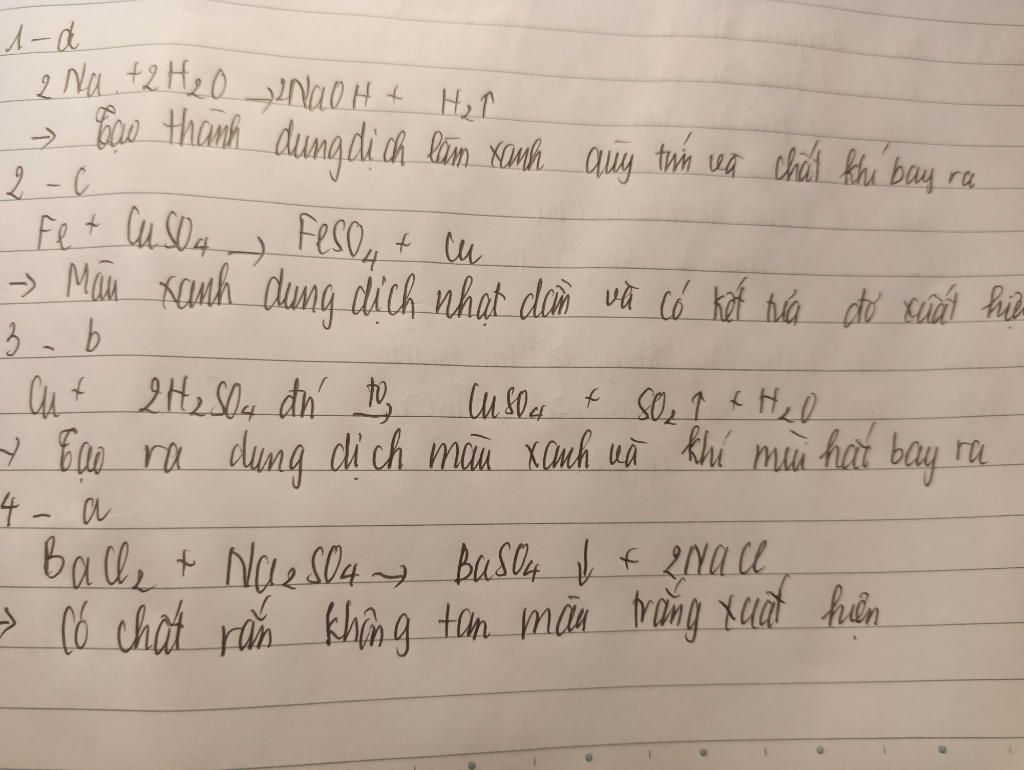 1 - d
2Na + 2H2O → 2NaOH + H2↑
→ Tạo thành dung dịch làm xanh quỳ tím và chất khí bay ra
2 - c
Fe + CuSO4 → FeSO4 + Cu
→ Màu xanh dung dịch nhạt dần và có kết tủa đỏ xuất hiện
3 - b
Cu + 2H2SO4 đn to→ CuSO4 + SO2↑ + H2O
→ Tạo ra dung dịch màu xanh và khí mùi hắt bay ra
4 - a
BaCl2 + Na2SO4 → BaSO4 ↓ + 2NaCl
→ Có chất rắn không tan màu trắng xuất hiện